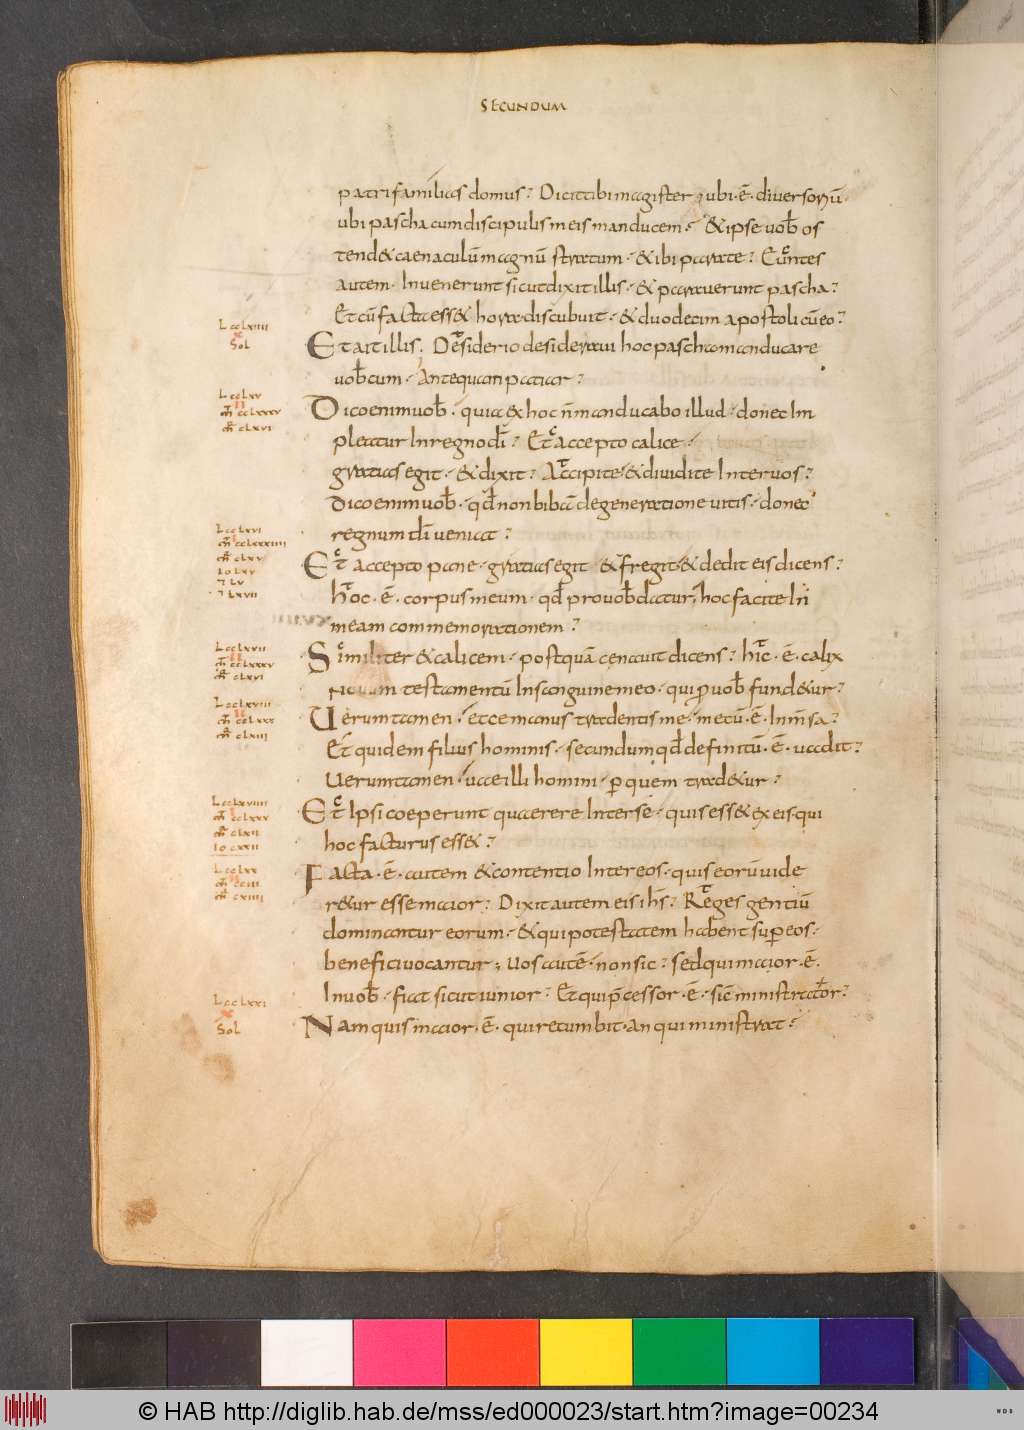 SECUNDUM
patrifamilias domus? Dicit tibi magister, ubi · ē · diversoriū ·
ubi pascha cum discipulis meis manducem? & ipse vob̄ os
tend& caenaculū magnū stratum · & ibi parate? Euntes
autem · Invenerunt sicut dixit illis · & paraverunt pascha?
Et cū facta ess& hora discubuit · & duodecim apostoli cū eo?
L cclxiiii
x
Sol
Et ait illis. Desiderio desideravi hoc pascha manducare
vob̄cum · Antequam patiar?
L cclxv
II
m̄ cclxxxv
m̄r clxvi
Dico enim vob̄ · quia ex hoc n̄ manducabo illud · donec Im
pleatur In regno dī? Et accepto calice ·
gratias egit · & dixit? Accipite & dividite Inter vos?
Dico enim vob̄ · qd̄ non bibā de generatione vitis · donec
regnum dī veniat?
L cclxvi
m̄ cclxxxiiii
m̄r clxv
Io lxv
7 lv
7 lxvii
Et accepto pane · gratias egit & fregit · & dedit eis dicens?
Hoc · ē · corpus meum · qd̄ pro vob̄ datur, hoc facite In
meam commemorationem?
L cclxvii
II
m̄ cclxxxv
m̄r clxvi
Similiter & calicem · postquā cenavit dicens? hic · ē · calix
Novum testamentū In sanguine meo · qui p vob̄ fund&ur?
L cclxviii
m̄ cclxxx
m̄r clxiii
Verumtamen · ecce manus tradentis me · mecū · ē · In m̄sa?
Et quidem filius hominis · secundum qd̄ definitū · ē · vadit?
Verumtamen · vae illi homini · p quem trad&ur?
L cclxviiii
m̄ cclxxx
m̄r clxii
Io cxxii
Et Ipsi coeperunt quaerere Inter se · quis ess& ex eis · qui
hoc facturus ess&?
L cclxx
II
m̄ cciii
m̄r cxiiii
Facta · ē · autem & contentio Inter eos · quis eorū vide
r&ur esse maior? Dixit autem eis ih̄s? Reges gentiū
dominantur eorum · & qui potestatem habent sup eos ·
benefici vocantur, Vos autē · non sic? sed qui maior · ē ·
In vob̄ · fiat sicut iunior? Et qui p̄cessor · ē · sic ministrator?
L cclxxi
x
Sol
Nam quis maior · ē · qui recumbit · an qui ministrat?
© HAB http://diglib.hab.de/mss/ed000023/start.htm?image=00234